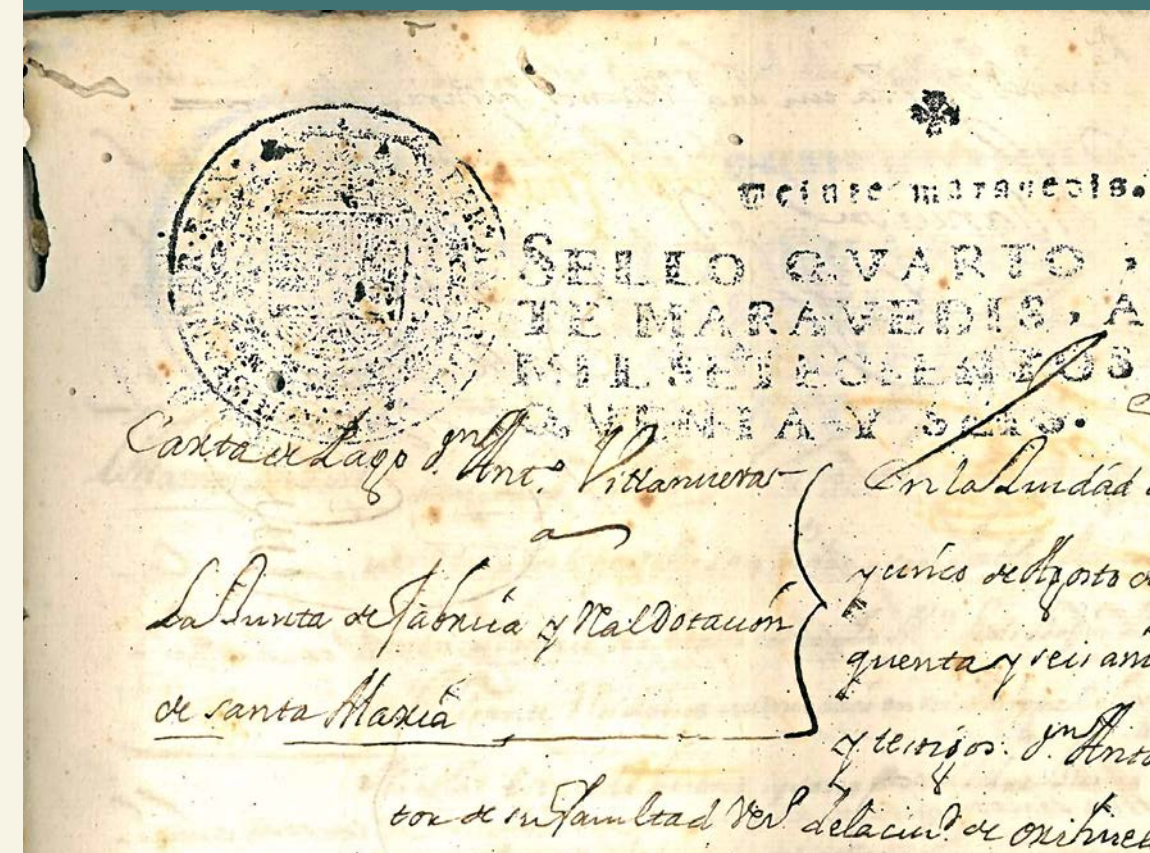 Veinte maravedis.
SELLO QVARTO,
TE MARAVEDIS, A
MIL SETECIENTOS
QVENTA Y SEIS.
Carta de Pago dn. Ant.o Villanueva
a
La Junta de fabrica y Rl Dotación
de santa Maria
En la Ciudád
y cinco de Agosto d
quenta y seis añ
y testigos. dn Anto
tor de su facultad Vezo. dela ciud. de orihuel